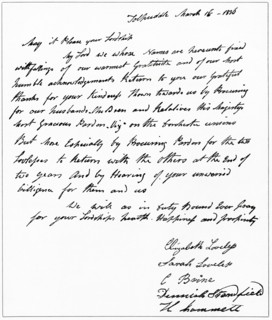 Tolpuddle March 16 - 1836
May it Please your Lordship
My Lord we whose Names are hereunto fixed
with feelings of our warmest Gratitude and of our most
humble acknowledgements Return to you our grateful
thanks for your kindness Shown towards us by Procuring
for our husbands, Children and Relatives his Majesty's
Most Gracious Pardon, on the
But More Especially by Procuring Pardon for the two
Loveless to Return with the others at the End of
two years And by Hearing of your unwearied
Diligence for them and us
We will as in Duty Bound Ever Pray
for your Lordships health Happiness and prosperity
Elizabeth Loveless
Sarah Loveless
C Brine
Standfield
H Hammett